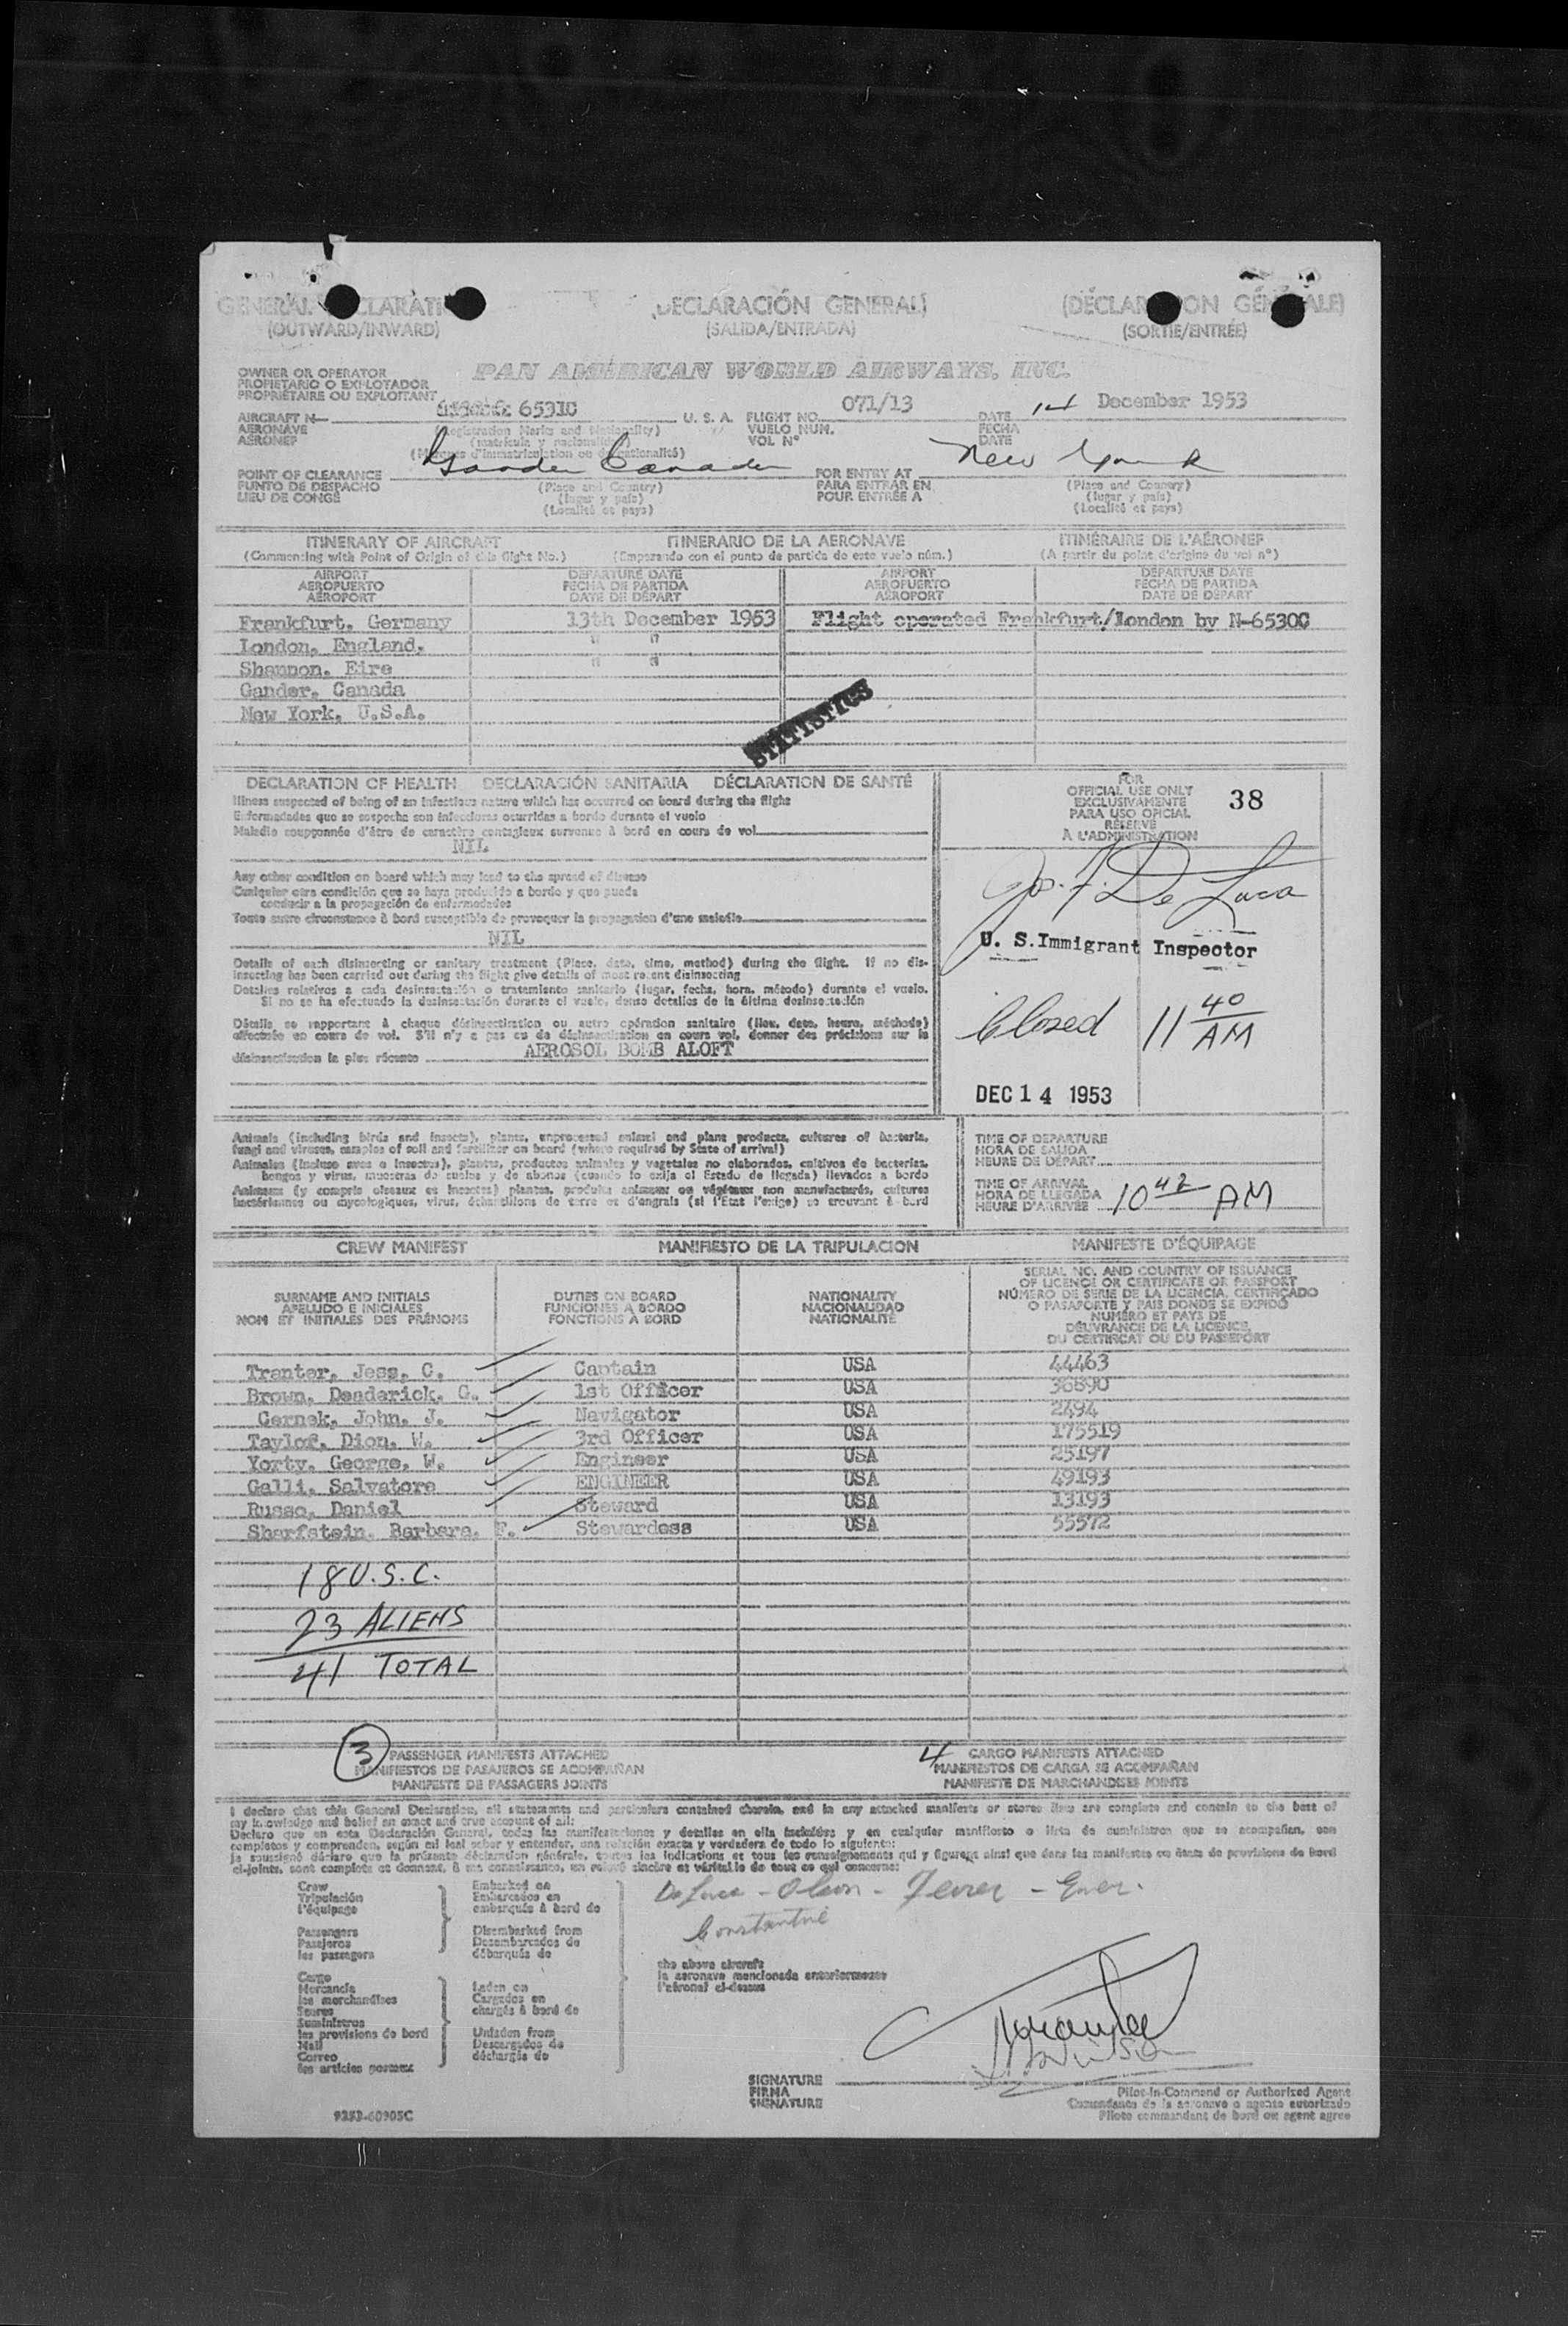 GENERAL DECLARATION
(OUTWARD/INWARD)
(DECLARACIÓN GENERAL)
(SALIDA/ENTRADA)
(DÉCLARATION GÉNÉRALE)
(SORTIE/ENTRÉE)
OWNER OR OPERATOR
PROPIETARIO O EXPLOTADOR
PROPRIÉTAIRE OU EXPLOITANT
PAN AMERICAN WORLD AIRWAYS, INC.
AIRCRAFT N— 6531C U. S. A. FLIGHT NO. 071/13 DATE 14 December 1953
AERONAVE VUELO NUM. FECHA
AÉRONEF VOL Nº DATE
(Registration Marks and Nationality)
(matrícula y nacionalidad)
(Marques d'immatriculation ou de nationalité)
POINT OF CLEARANCE Gander Canada FOR ENTRY AT New York
PUNTO DE DESPACHO (Place and Country) PARA ENTRAR EN (Place and Country)
LIEU DE CONGÉ (lugar y país) POUR ENTRÉE A (lugar y país)
(Localité et pays) (Localité et pays)
ITINERARY OF AIRCRAFT ITINERARIO DE LA AERONAVE ITINÉRAIRE DE L'AÉRONEF
(Commencing with Point of Origin of this flight No.) (Empezando con el punto de partida de este vuelo núm.) (A partir du point d'origine du vol nº)
AIRPORT DEPARTURE DATE AIRPORT DEPARTURE DATE
AEROPUERTO FECHA DE PARTIDA AEROPUERTO FECHA DE PARTIDA
AÉROPORT DATE DE DÉPART AÉROPORT DATE DE DÉPART
Frankfurt, Germany 13th December 1953 Flight operated Frankfurt/London by N-6530C
London, England. " "
Shannon, Eire " "
Gander, Canada
New York, U.S.A.
STATISTICS
DECLARATION OF HEALTH DECLARACIÓN SANITARIA DÉCLARATION DE SANTÉ
Illness suspected of being of an infectious nature which has occurred on board during the flight
Enfermedades que se sospecha son infecciosas ocurridas a bordo durante el vuelo
Maladie soupçonnée d'être de caractère contagieux survenue à bord en cours de vol
NIL
Any other condition on board which may lead to the spread of disease
Cualquier otra condición que se haya producido a bordo y que pueda
conducir a la propagación de enfermedades
Toute autre circonstance à bord susceptible de provoquer la propagation d'une maladie
NIL
Details of each disinsecting or sanitary treatment (Place, date, time, method) during the flight. If no dis-
insecting has been carried out during the flight give details of most recent disinsecting
Detalles relativos a cada desinsectación o tratamiento sanitario (lugar, fecha, hora, método) durante el vuelo.
Si no se ha efectuado la desinsectación durante el vuelo, dense detalles de la última desinsectación
Détails se rapportant à chaque désinsectisation ou autre opération sanitaire (lieu, date, heure, méthode)
effectuée en cours de vol. S'il n'y a pas eu de désinsectisation en cours vol, donner des précisions sur la
désinsectisation la plus récente AEROSOL BOMB ALOFT
FOR
OFFICIAL USE ONLY
EXCLUSIVAMENTE
PARA USO OFICIAL
RÉSERVÉ
À L'ADMINISTRATION
38
Jos. F. De Luca
U. S. Immigrant Inspector
Closed 11 40 AM
DEC 14 1953
Animals (including birds and insects), plants, unprocessed animal and plant products, cultures of bacteria,
fungi and viruses, samples of soil and fertilizer on board (where required by State of arrival)
Animales (incluso aves e insectos), plantas, productos animales y vegetales no elaborados, cultivos de bacterias,
hongos y virus, muestras de suelos y de abonos (cuando lo exija el Estado de llegada) llevados a bordo
Animaux (y compris oiseaux et insectes) plantes, produits animaux ou végétaux non manufacturés, cultures
bactériennes ou mycologiques, virus, échantillons de terre et d'engrais (si l'Etat l'exige) se trouvant à bord
TIME OF DEPARTURE
HORA DE SALIDA
HEURE DE DÉPART
TIME OF ARRIVAL
HORA DE LLEGADA
HEURE D'ARRIVÉE 10 42 AM
CREW MANIFEST MANIFIESTO DE LA TRIPULACION MANIFESTE D'ÉQUIPAGE
SURNAME AND INITIALS
APELLIDO E INICIALES
NOM ET INITIALES DES PRÉNOMS
DUTIES ON BOARD
FUNCIONES A BORDO
FONCTIONS À BORD
NATIONALITY
NACIONALIDAD
NATIONALITÉ
SERIAL NO. AND COUNTRY OF ISSUANCE
OF LICENCE OR CERTIFICATE OR PASSPORT
NÚMERO DE SERIE DE LA LICENCIA, CERTIFICADO
O PASAPORTE Y PAIS DONDE SE EXPIDÓ
NUMÉRO ET PAYS DE
DÉLIVRANCE DE LA LICENCE,
DU CERTIFICAT OU DU PASSEPORT
Tranter, Jess, C. Captain USA 44463
Brown, Deaderick, G. 1st Officer USA 36890
Cernek, John, J. Navigator USA 2494
Taylor, Dion, W. 3rd Officer USA 175519
Yorty, George, W. Engineer USA 25197
Galli, Salvatore ENGINEER USA 49193
Russo, Daniel Steward USA 13193
Sharfstein, Barbara, F. Stewardess USA 55572
18 U.S.C.
23 ALIENS
41 TOTAL
3 PASSENGER MANIFESTS ATTACHED 4 CARGO MANIFESTS ATTACHED
MANIFIESTOS DE PASAJEROS SE ACOMPAÑAN MANIFIESTOS DE CARGA SE ACOMPAÑAN
MANIFESTE DE PASSAGERS JOINTS MANIFESTE DE MARCHANDISES JOINTS
I declare that this General Declaration, all statements and particulars contained therein, and in any attached manifests or stores lists are complete and contain to the best of
my knowledge and belief an exact and true account of all:
Declaro que en esta Declaración General, todas las manifestaciones y detalles en ella incluidos y en cualquier manifiesto o lista de suministros que se acompañan, son
completos y comprenden, según mi leal saber y entender, una relación exacta y verdadera de todo lo siguiente:
Je soussigné déclare que la présente déclaration générale, toutes les indications et tous les renseignements qui y figurent ainsi que dans les manifestes ou états de provisions de bord
ci-joints, sont complets et donnent, à ma connaissance, un relevé sincère et véritable de tout ce qui concerne:
Crew
Tripulación
l'équipage
Passengers
Pasajeros
les passagers
Embarked on
Embarcados en
embarqués à bord de
Disembarked from
Desembarcados de
débarqués de
Cargo
Mercancía
les marchandises
Stores
Suministros
les provisions de bord
Mail
Correo
les articles postaux
Laden on
Cargados en
chargés à bord de
Unladen from
Descargados de
déchargés de
De Luca - Olson -
Constantine
the above aircraft
la aeronave mencionada anteriormente
l'aéronef ci-dessus
SIGNATURE
FIRMA
SIGNATURE
Pilot-in-Command or Authorized Agent
Comandante de la aeronave o agente autorizado
Pilote commandant de bord ou agent agréé
9253-60905C